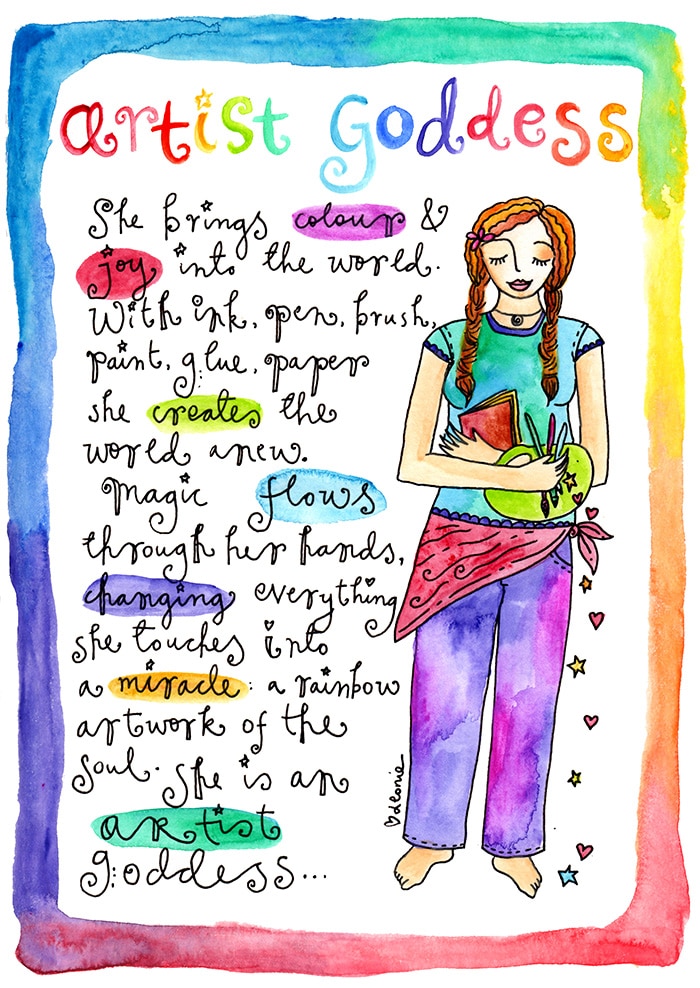 artist goddess
She brings colour &
joy into the world.
With ink, pen, brush,
paint, glue, paper
she creates the
world anew.
Magic flows
through her hands,
changing everything
she touches into
a miracle: a rainbow
artwork of the
soul. She is an
artist
goddess...
leonie